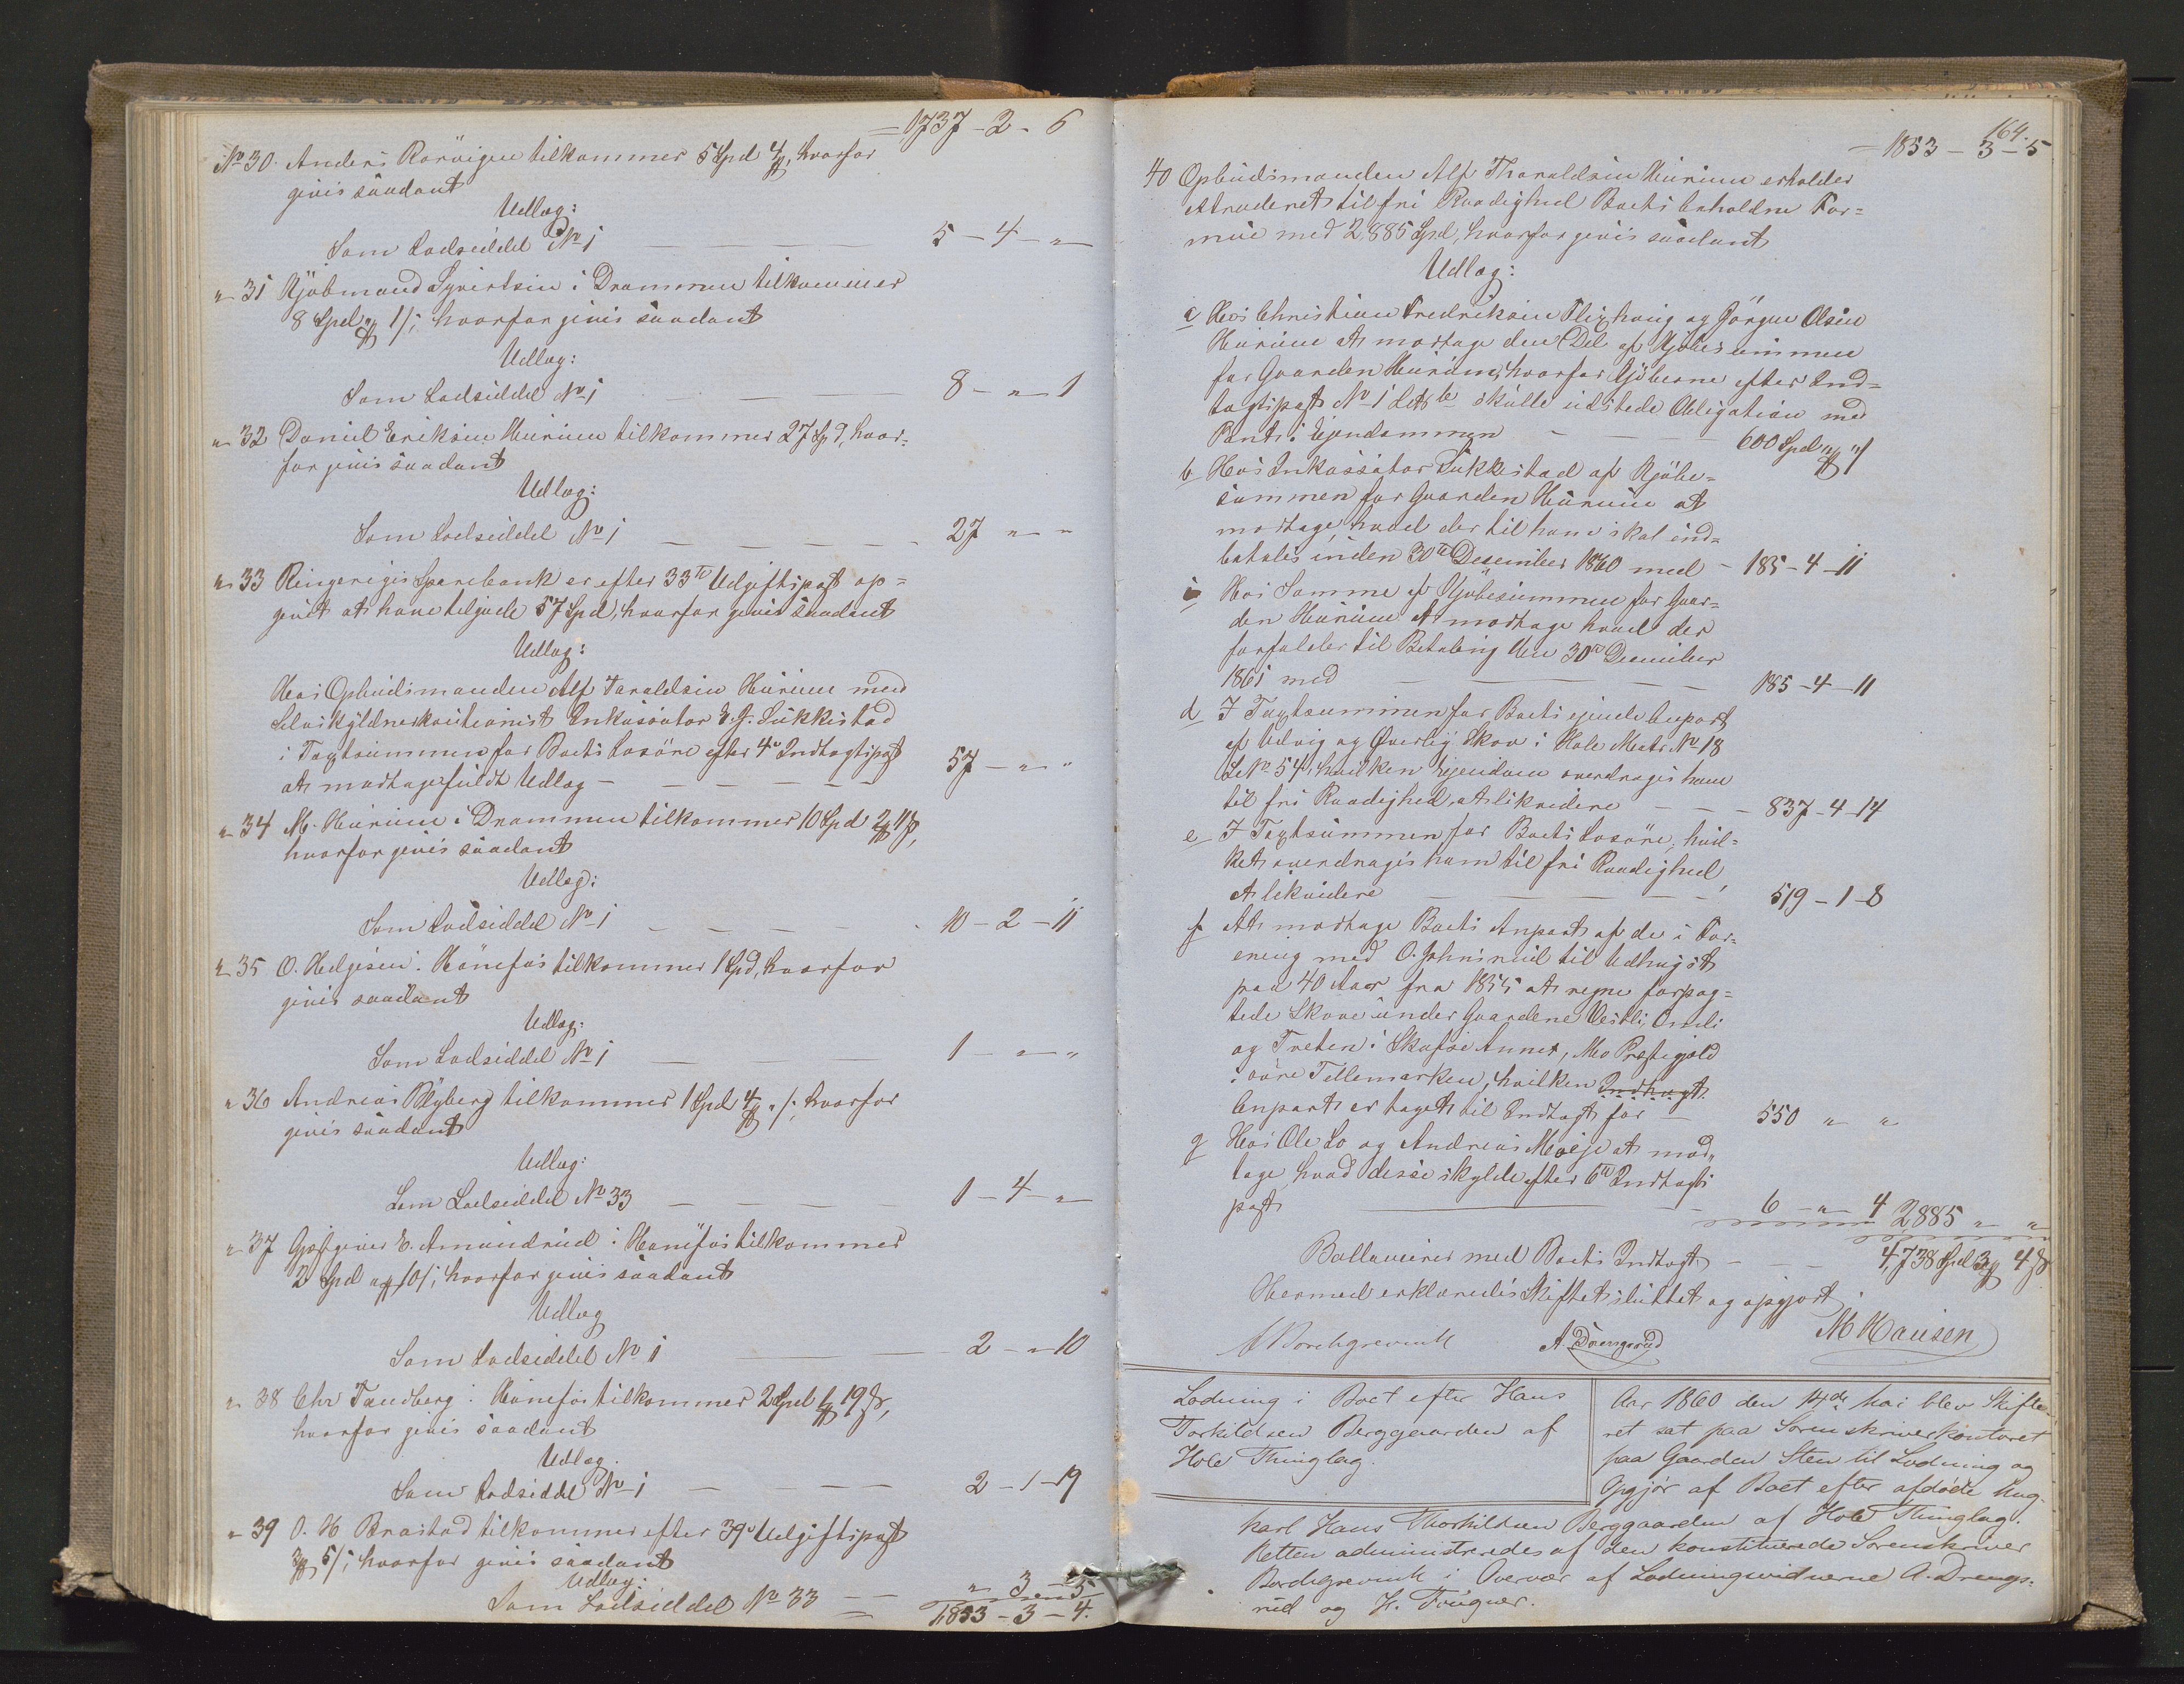 = 1737 - 2 - 6
No 30. Anders Rørvigen tilkommer 5 Spd 4 ß, hvorfor
gives saadant
Udlæg:
Som Lodseddel No 1 — 5 - 4 - "
" 31 Kjøbmand Syvertsen i Drammen tilkommer
8 Spd " 1 ß; hvorfor gives saadant
Udlæg:
Som Lodseddel No 1 — — — 8 - " - 1
" 32 Daniel Eriksen Hurum tilkommer 27 Spd, hvor=
for gives saadant
Udlæg:
Som Lodseddel No 1 — — — — 27 " "
" 33 Ringeriges Sparebank er efter 33te Udgiftspost op=
givet at have tilgode 57 Spd, hvorfor gives saadant
Udlæg:
Hos Opbudsmanden Alf Taraldsen Hurum med
Selvskyldnerkautionist Inkassator E. G. Lukkestad
i Taxtsummen for Boets Løsøre efter 4de Indtægtspost
at modtage fuldt Udlæg — — — — — 57 - " - "
" 34 M. Hurum i Drammen tilkommer 10 Spd 2 11 ß,
hvorfor gives saadant
Udlæg:
Som Lodseddel No 1 — — — — 10 - 2 - 11
" 35 O. Helgesen i Hønefos tilkommer 1 Spd, hvorfor
gives saadant
Udlæg:
Som Lodseddel No 1 — — 1 - " - "
" 36 Andreas Blyberg tilkommer 1 Spd 4 " ß; hvorfor
gives saadant
Udlæg:
Som Lodseddel No 33 — — — — 1 - 4 - "
" 37 Gjæstgiver E. Amundrud i Hønefos tilkommer
2 Spd " 10 ß; hvorfor gives saadant
Udlæg
Som Lodseddel No 1 — — 2 - " - 10
" 38 Chr Tandberg i Hønefos tilkommer 2 Spd 1 19 ß,
hvorfor gives saadant
Udlæg.
Som Lodseddel No 1 — — — 2 - 1 - 19
" 39 O. H Brastad tilkommer efter 39de Udgiftspost
3 5 ß; hvorfor gives saadant
Udlæg:
Som Lodseddel No 33 — — " 3 - 5
1853 - 3 - 4.
164.
= 1853 - 3 - 5
40 Opbudsmanden Alf Tharaldsen Hurum erholder
extraderet til fri Raadighed Boets beholdne For=
mue med 2,885 Spd, hvorfor gives saadant
Udlæg:
a Hos Christian Fredriksen og Jørgen Olsen
Hurum at modtage den Del af Kjøbesummen
for Gaarden Hurum, hvorfor Kjøberne efter Ind=
tægtspost No 1 Litr b skulle udstede Obligation med
Pant i Eiendommen — — — 600 Spd " " ß
b Hos Inkassator Lukkestad af Kjøbe=
summen for Gaarden Hurum at
modtage, hvad der til ham skal ind=
betales inden 30te Desember 1860 med - 185 - 4 - 11
c Hos Samme af Kjøbesummen for Gaar=
den Hurum at modtage hvad der
forfalder til Betaling den 30te Desember
1861 med — — — — 185 - 4 - 11
d I Taxtsummen for Boets eiende Anpart
af Udvig og Øverby Skov i Hole Matr. No 18
Le No 54, hvilken Eiendom overdrages ham
til fri Raadighed at likvidere — — — 837 - 4 - 14
e I Taxtsummen for Boets Løsøre, hvil=
ket overdrages ham til fri Raadighed,
at likvidere — — — — — 519 - 1 - 8
f At modtage Boets Anpart af de i For=
ening med O. Johnsrud til Udhugst
paa 40 Aar fra 1855 at regne forpag=
tede Skove under Gaardene Vestli, Omli
og Treten i Skafse Annex, Mo Præstegjeld
i øvre Tellemarken, hvilken Indhugt
Anpart er taget til Indtægt for — 550 " "
g Hos Ole Lo og Andreas Moeje at mod,
tage, hvad disse skylde efter 6te Indtægts
post — — 6 - " - 4 2885 " "
Ballancerer med Boets Indtægt — — — 4,738 Spd 3 4 ß
Hermed erklæredes Skiftet sluttet og opgjort.
Borchgrevink A Drengsrud M Hansen
Lodning i Boet efter Hans
Torkildsen Berggaarden af
Hole Thinglag.
Aar 1860 den 14de Mai blev Skifte
ret sat paa Sorenskriverkontoret
paa Gaarden Sten til Lodning og
Opgjør af Boet efter afdøde Ung-
karl Hans Thorkildsen Berggaarden af Hole Thinglag.
Retten administreredes af den konstituerede Sorenskriver
Borchgrevink i Overvær af Lodningsvidnerne A. Drengs=
rud og H. Fougner.